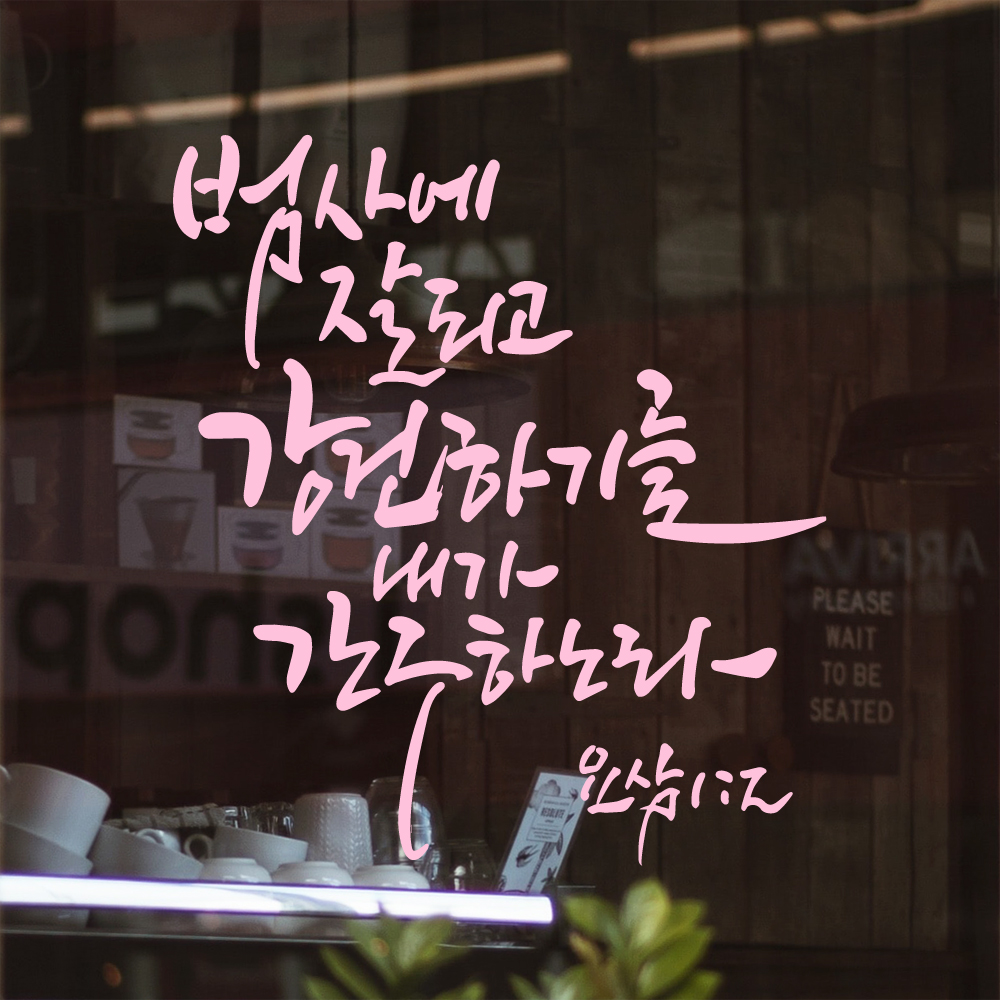 범사에
잘되고
강건하기를
내가
간구하노라
요삼 1:2
PLEASE
WAIT
TO BE
SEATED